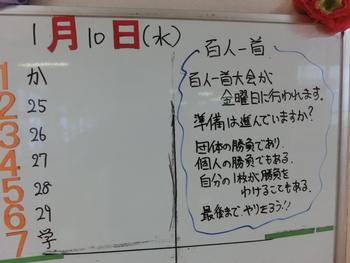 1月10日(水)
1 か
2 25
3 26
4 27
5 28
6 29
7 学
百人一首
百人一首大会が
金曜日に行われます。
準備は進んでいますか?
団体の勝負であり、
個人の勝負でもある。
自分の1枚が勝負を
わけることもある。
最後までやりきろう!!